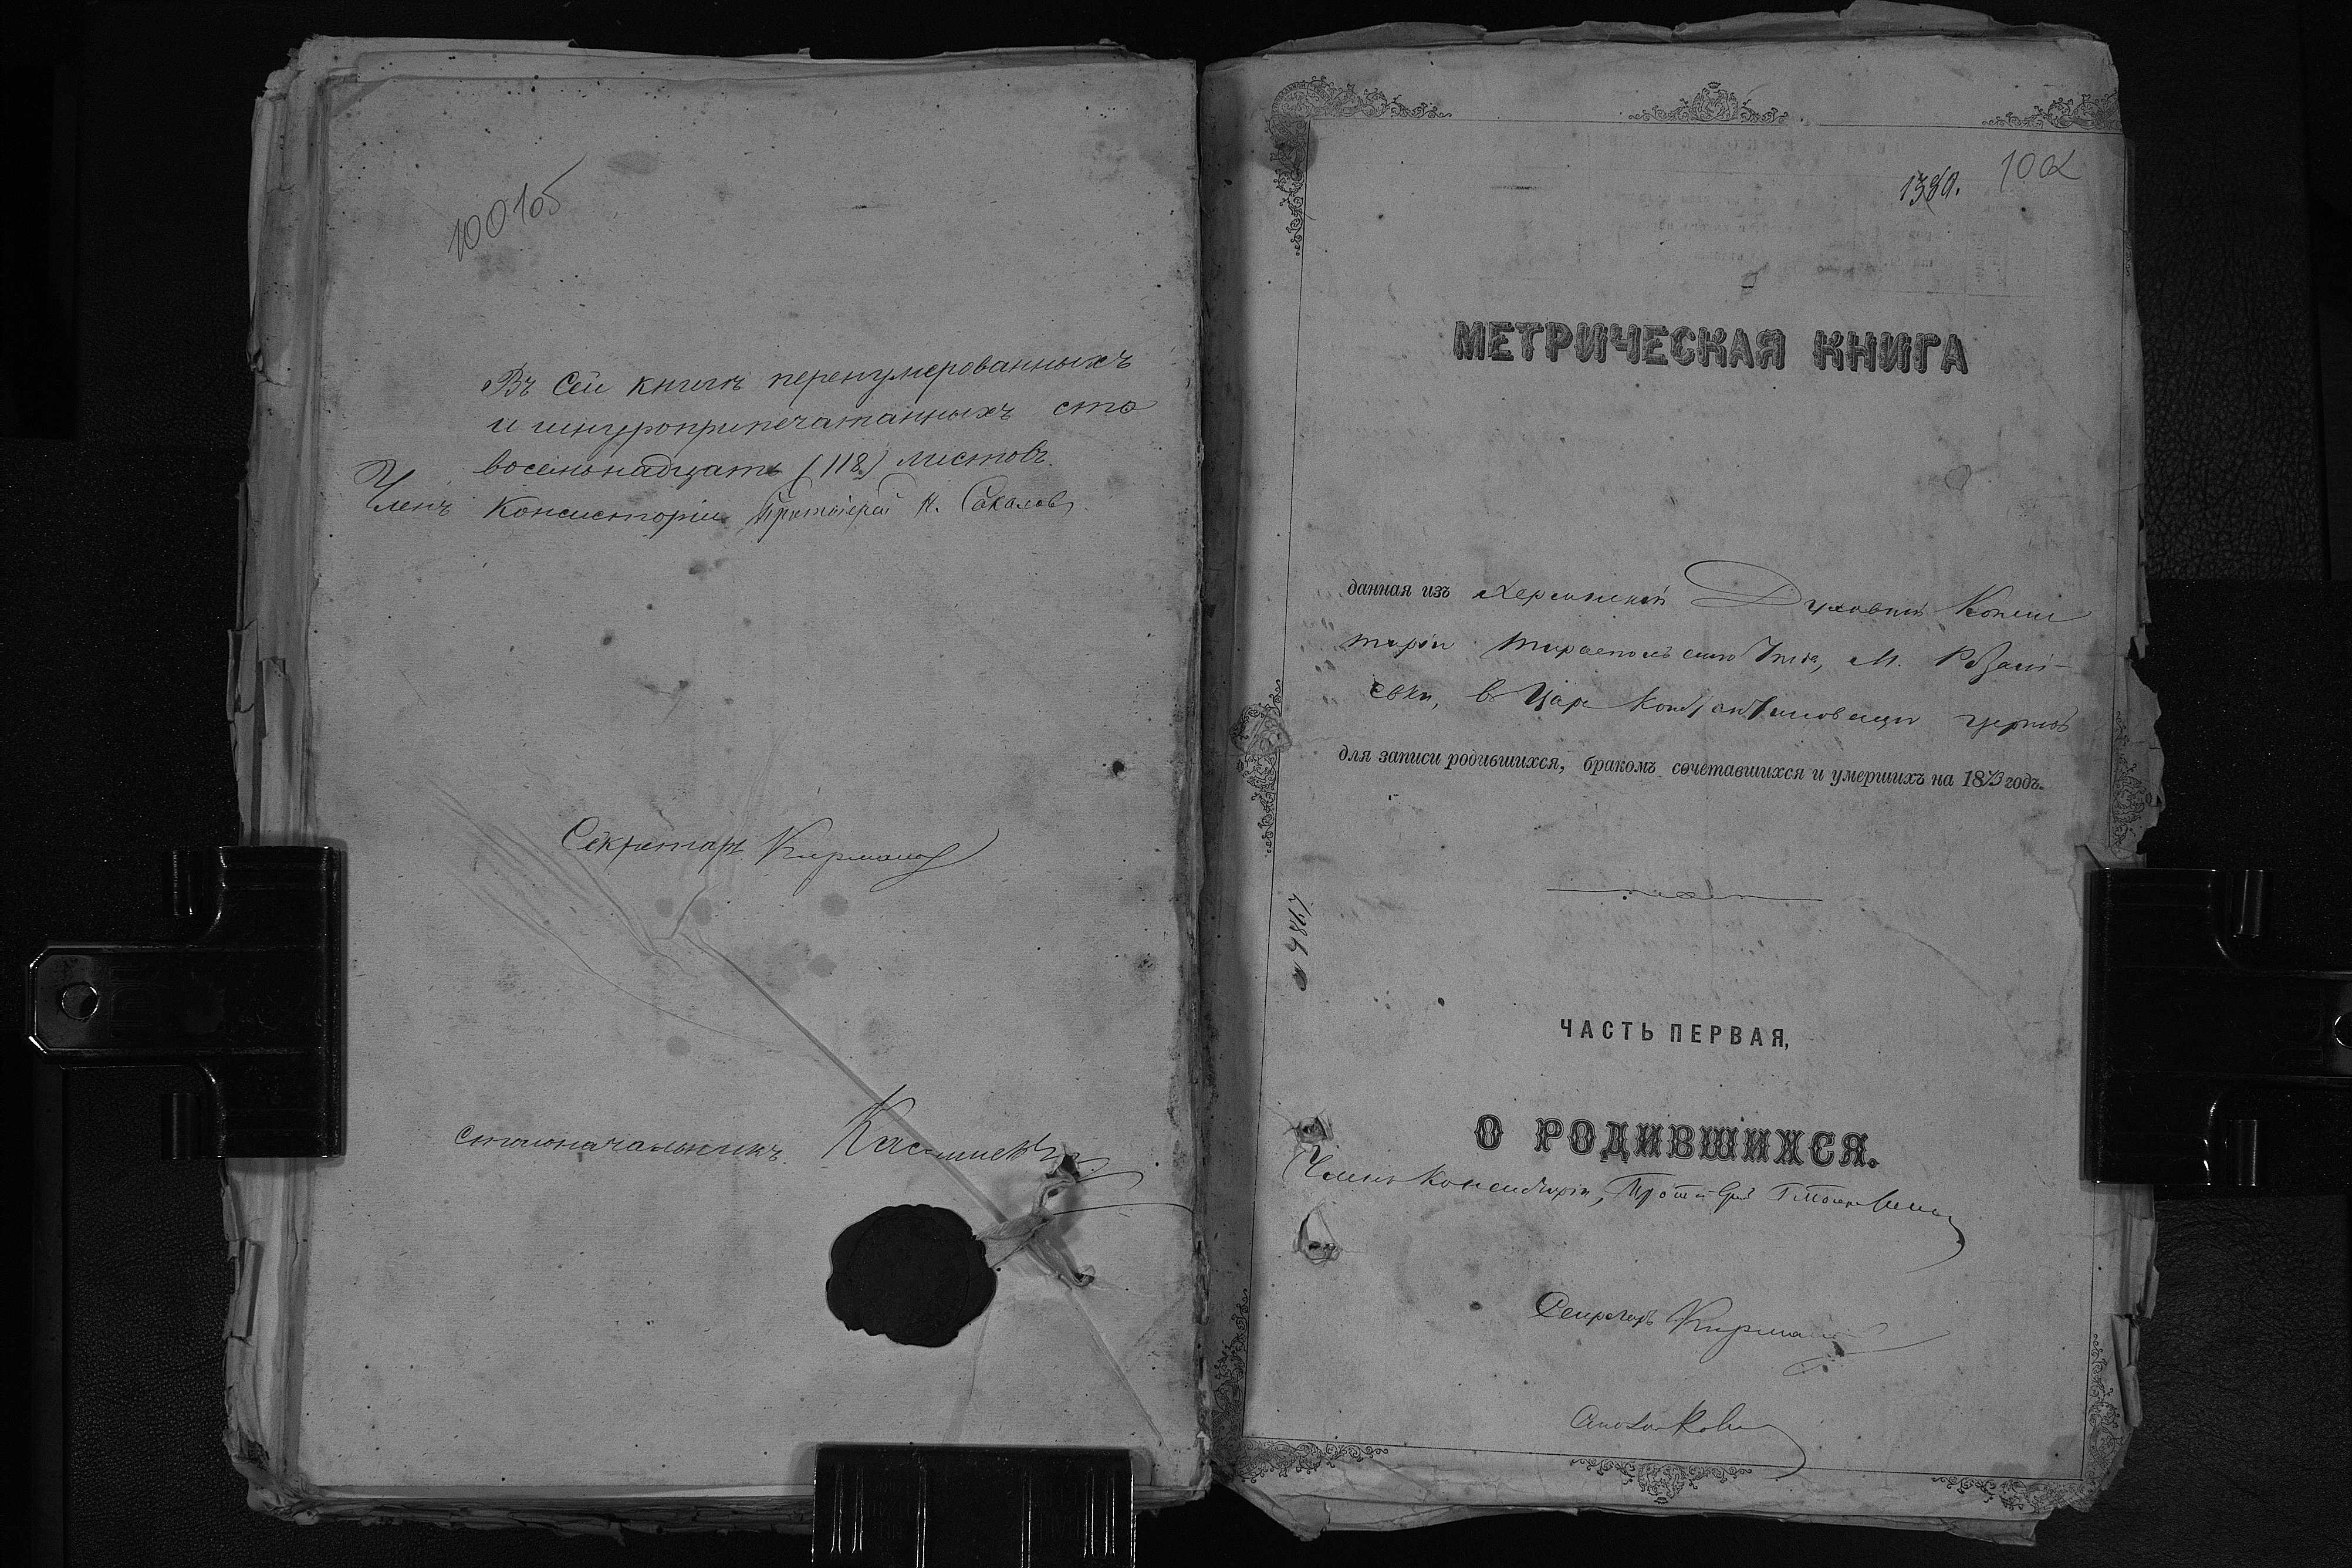 100 об
Въ сей книгѣ перенумерованныхъ
и шнуроприпечатанныхъ сто
восемьнадцать (118) листовъ.
Членъ Консисторіи Протоіерей Н. Соколовъ
Секретарь
столоначальникъ
102
МЕТРИЧЕСКАЯ КНИГА
данная изъ Херсонской Духовной Консис
торіи Тираспольскаго Уѣзда, М.
евки, въ Царе Константиновскую церковь
для записи родившихся, бракомъ сочетавшихся и умершихъ на 1873 годъ.
ЧАСТЬ ПЕРВАЯ,
О РОДИВШИХСЯ.
Членъ Консисторіи, Протоіерей
Секретарь